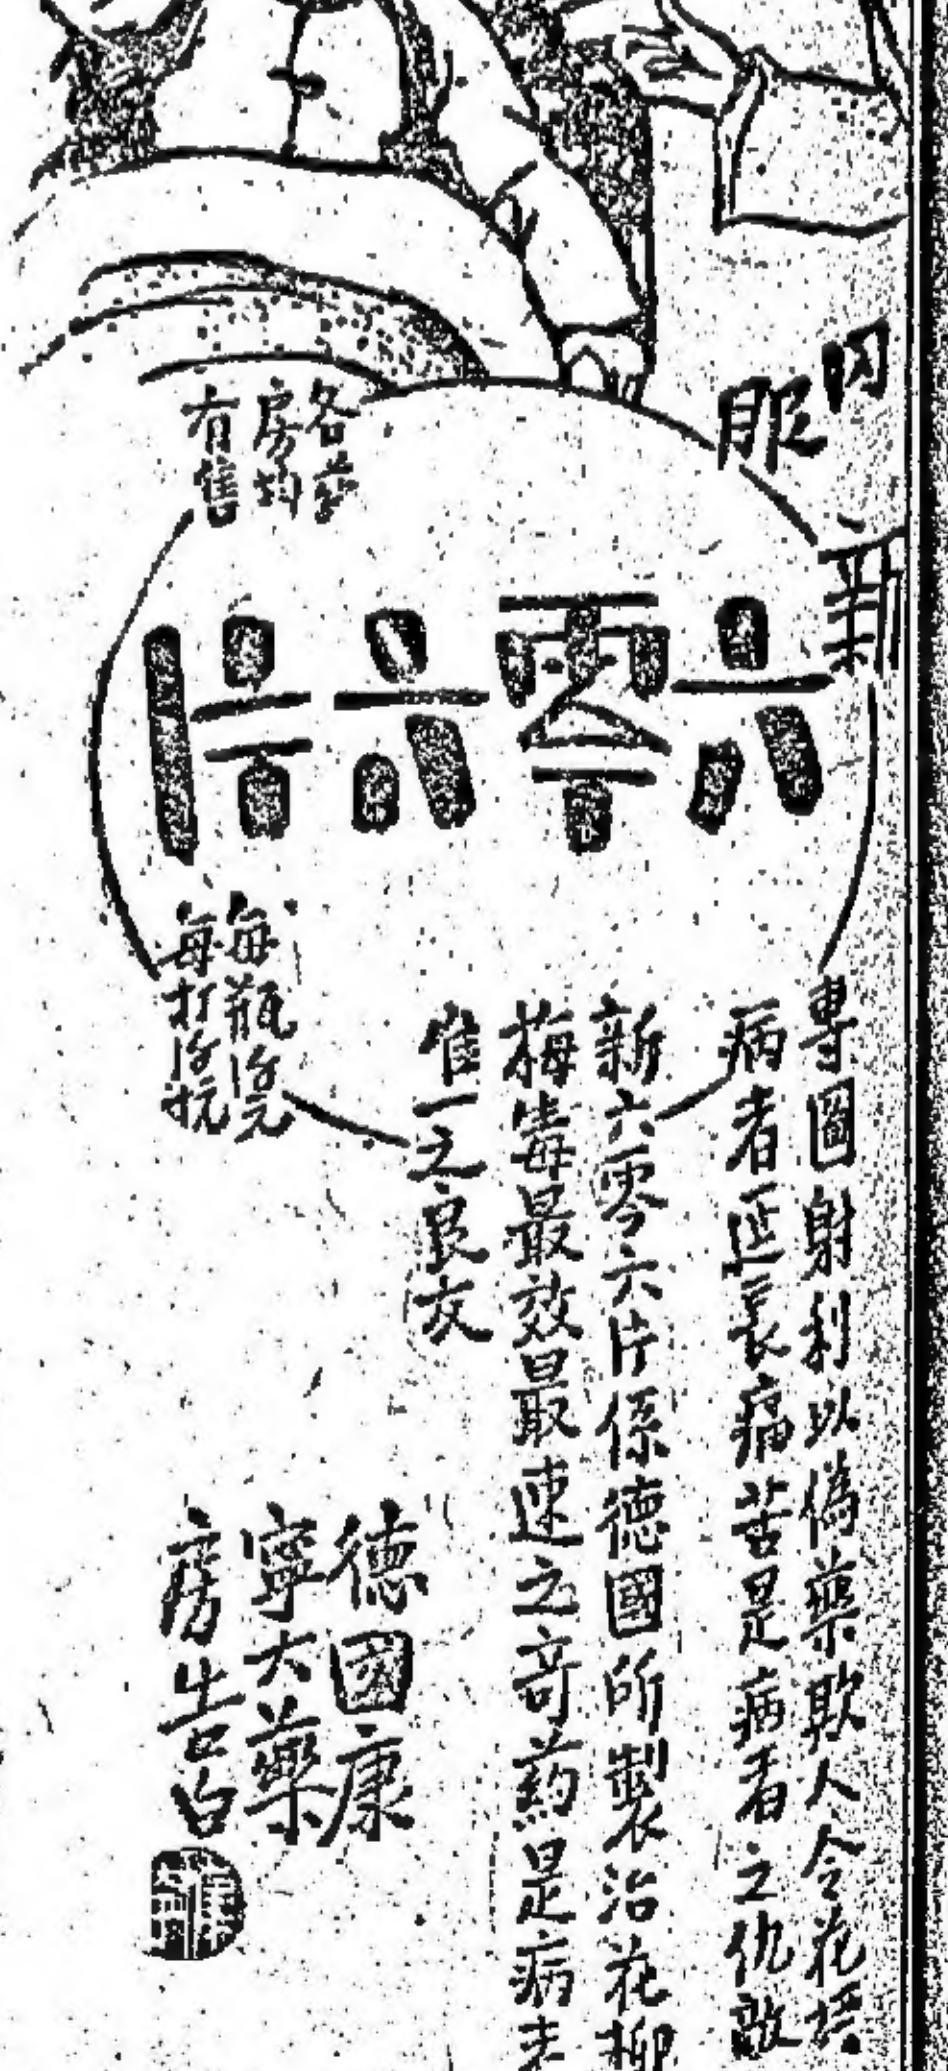 內服
新
六零六片
各藥
房均
有售
專圖射利以偽藥欺人令花
病者延長痛苦是病者之仇敵
新六零六片係德國所製治花柳
梅毒最效最速之奇药是病者
唯一之良友
每瓶洋元
每打洋
德國康
寧大藥
房告白